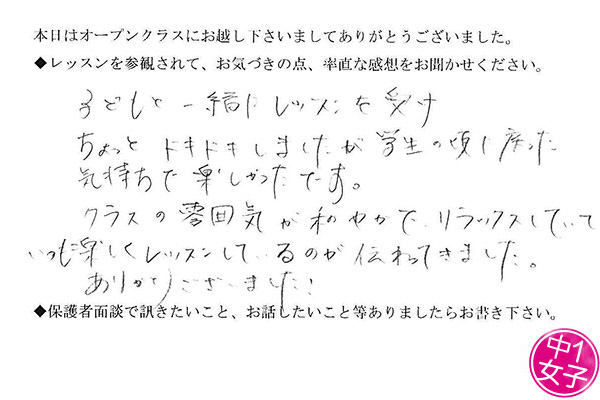 本日はオープンクラスにお越し下さいましてありがとうございました。
◆レッスンを参観されて、お気づきの点、率直な感想をお聞かせください。
子どもと一緒にレッスンを受け
ちょっとドキドキしましたが学生の頃に戻った
気持ちで楽しかったです。
クラスの雰囲気が和やかで、リラックスしていて
いつも楽しくレッスンしているのが伝わってきました。
ありがとうございました！
◆保護者面談で訊きたいこと、お話したいこと等ありましたらお書き下さい。
中1
女子